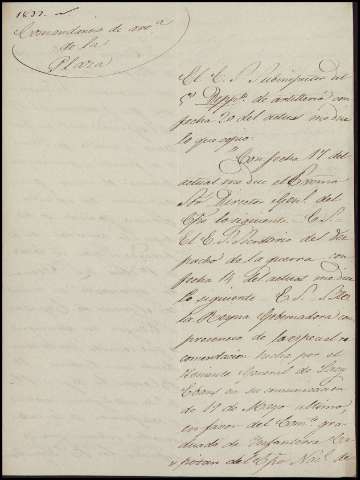 1837.
Comandancia de art.a
de la
Plaza
El E. S. Subinspector del
5.o Dep.to de artilleria con
fecha 20 del actual me dice
lo que copio.
Con fecha 17 del
actual me dice el Excmo
Sor Director Gral. del
Cpo. lo siguiente = E. S. =
El E. S. Secretario del Des
pacho de la guerra con
fecha 14 del actual me dice
lo siguiente = E. S. = S. M.
la Reyna Gobernadora con
presencia de la especial re
comendacion hecha por el
General de
en su comunicacion
de 17 de Mayo ultimo,
en favor del Com.te gra
duado de Infanteria Ca
pitan del de